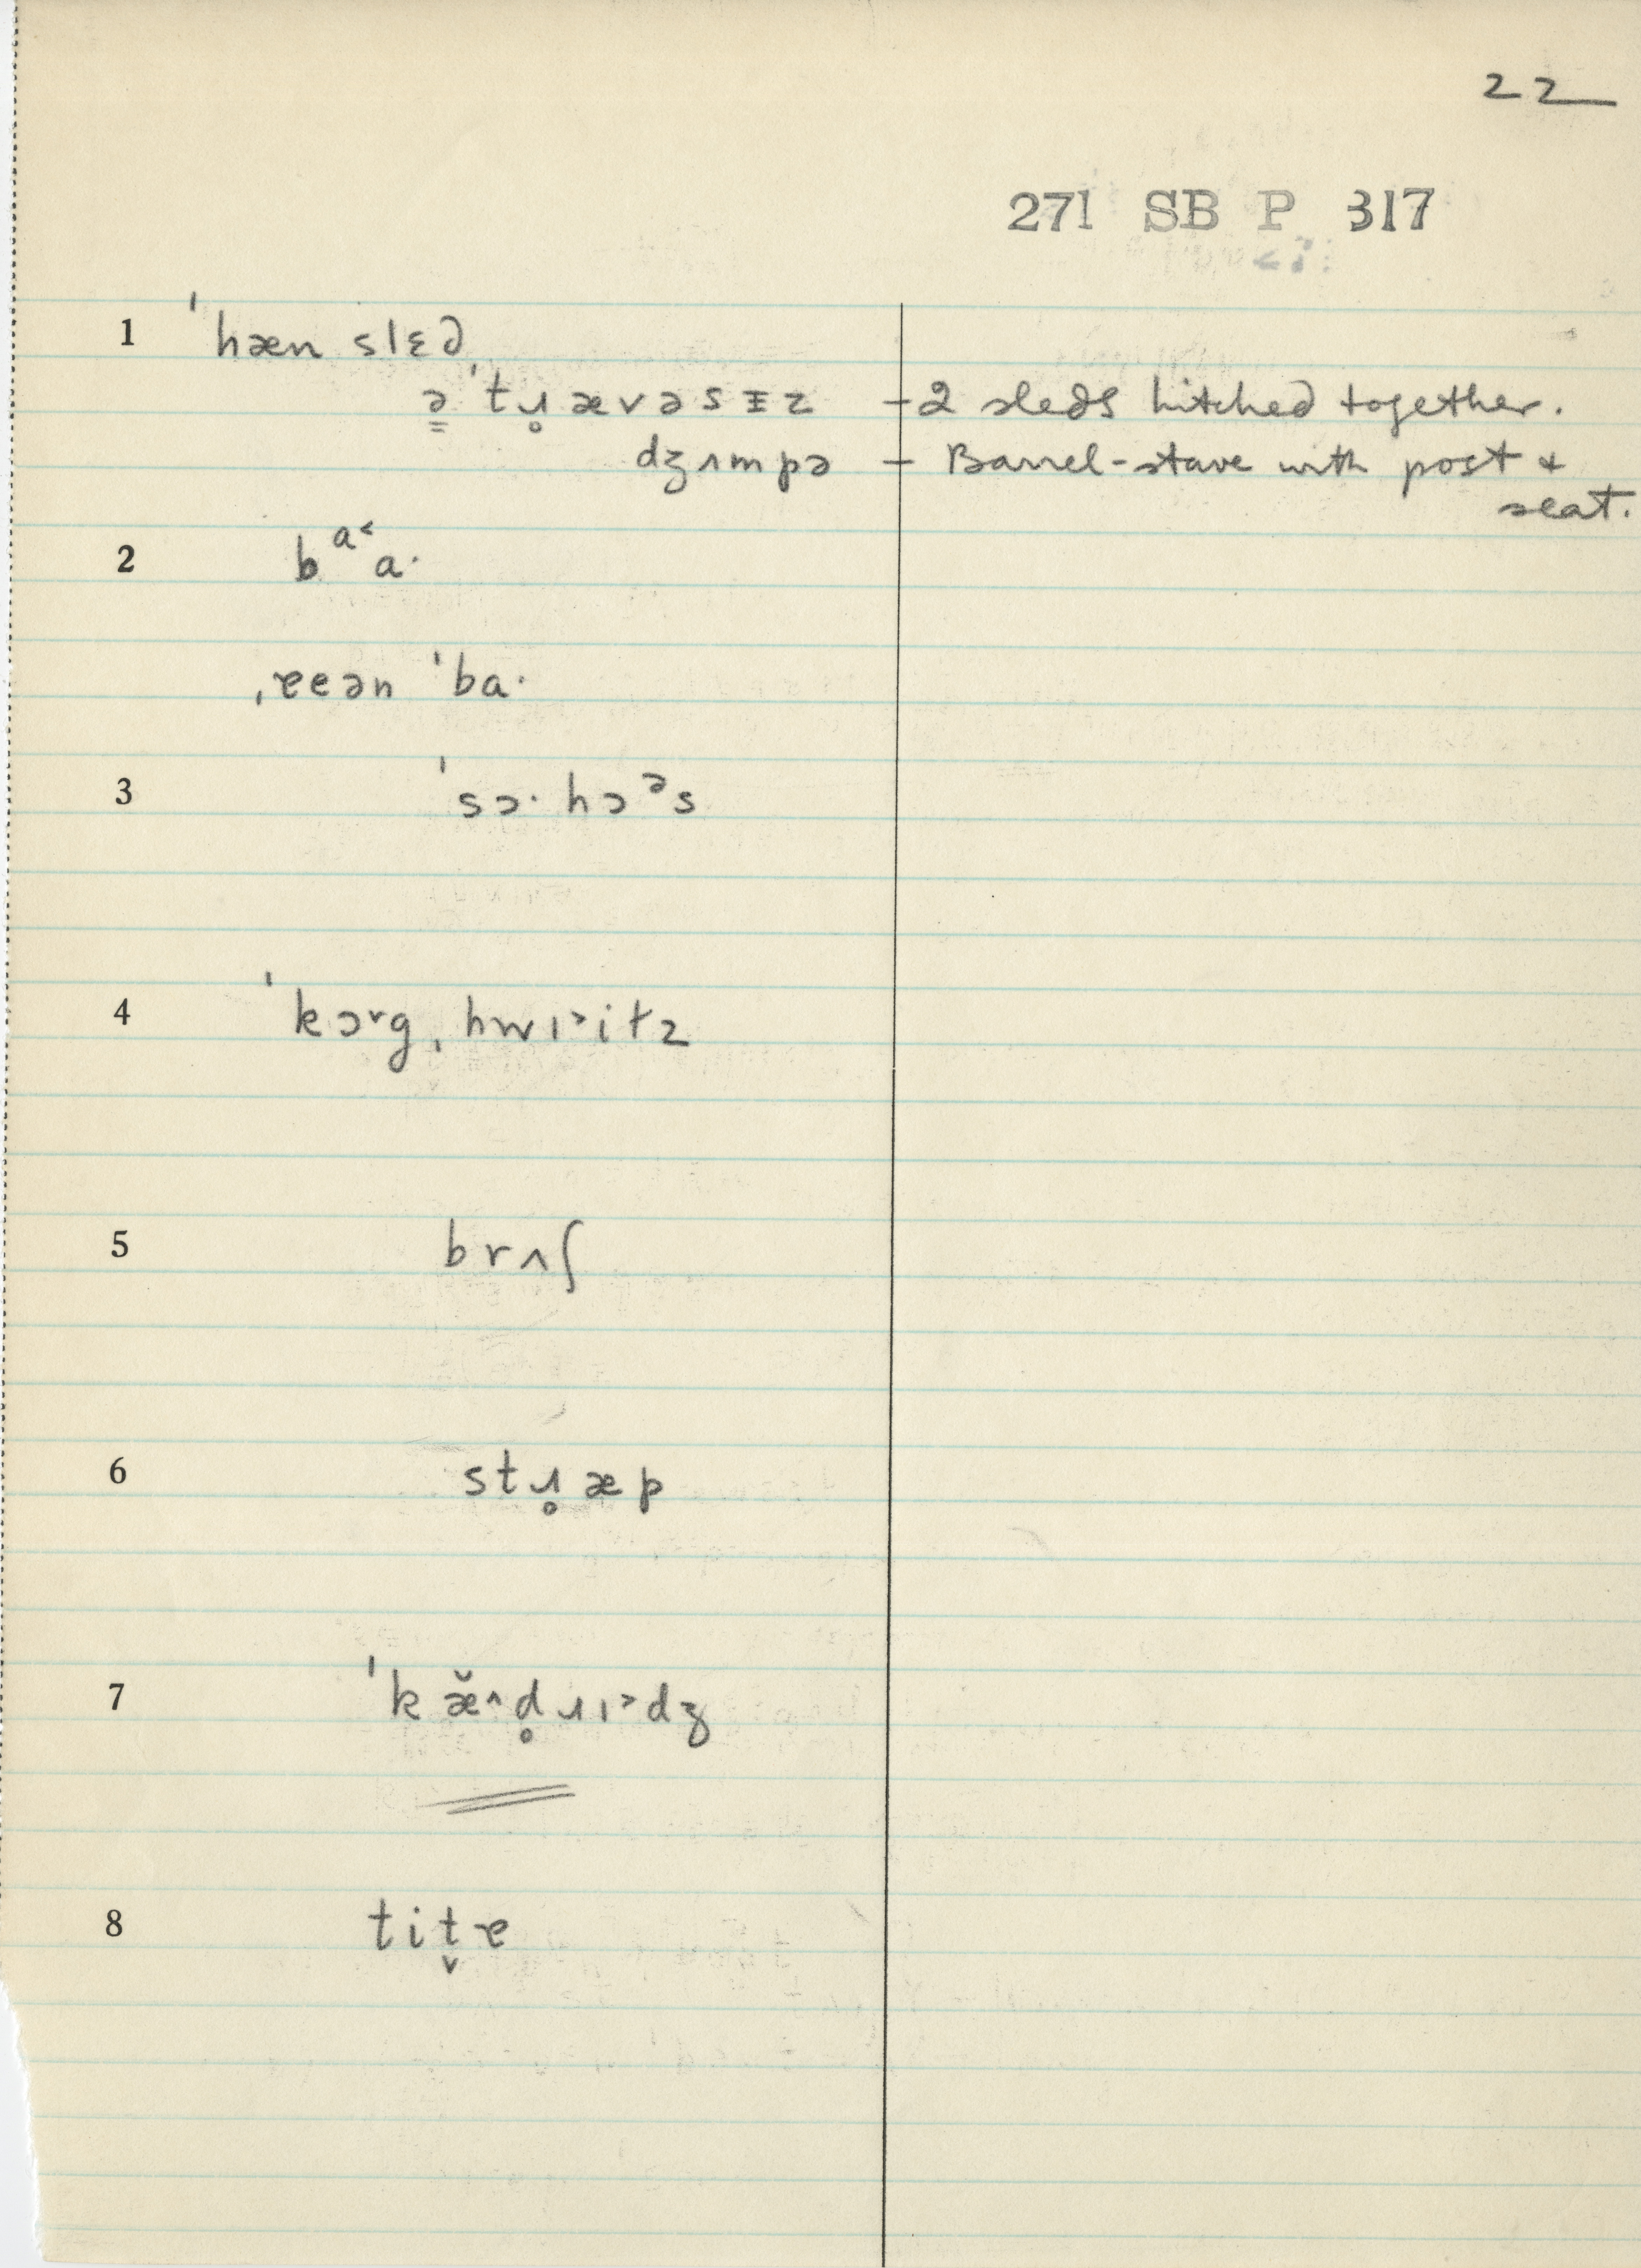 22
271 SB P 317
1 ˈhæn slɛd
ə̳ ˈtɹ̥ævəsɪz – 2 sleds hitched together.
dʒʌmpə – Barrel-stave with post +
seat.
2 bᵃ˂a·
ˌɐeən ˈba·
3 ˈsɔ· hɔᵊs
4 ˈkɔ˅g ˌhwɪ˃itz
5 brʌʃ
6 stɹ̥æp
7 ˈkæ̆˄d̥ɹɪ˃dʒ
8 tit̬ɐ